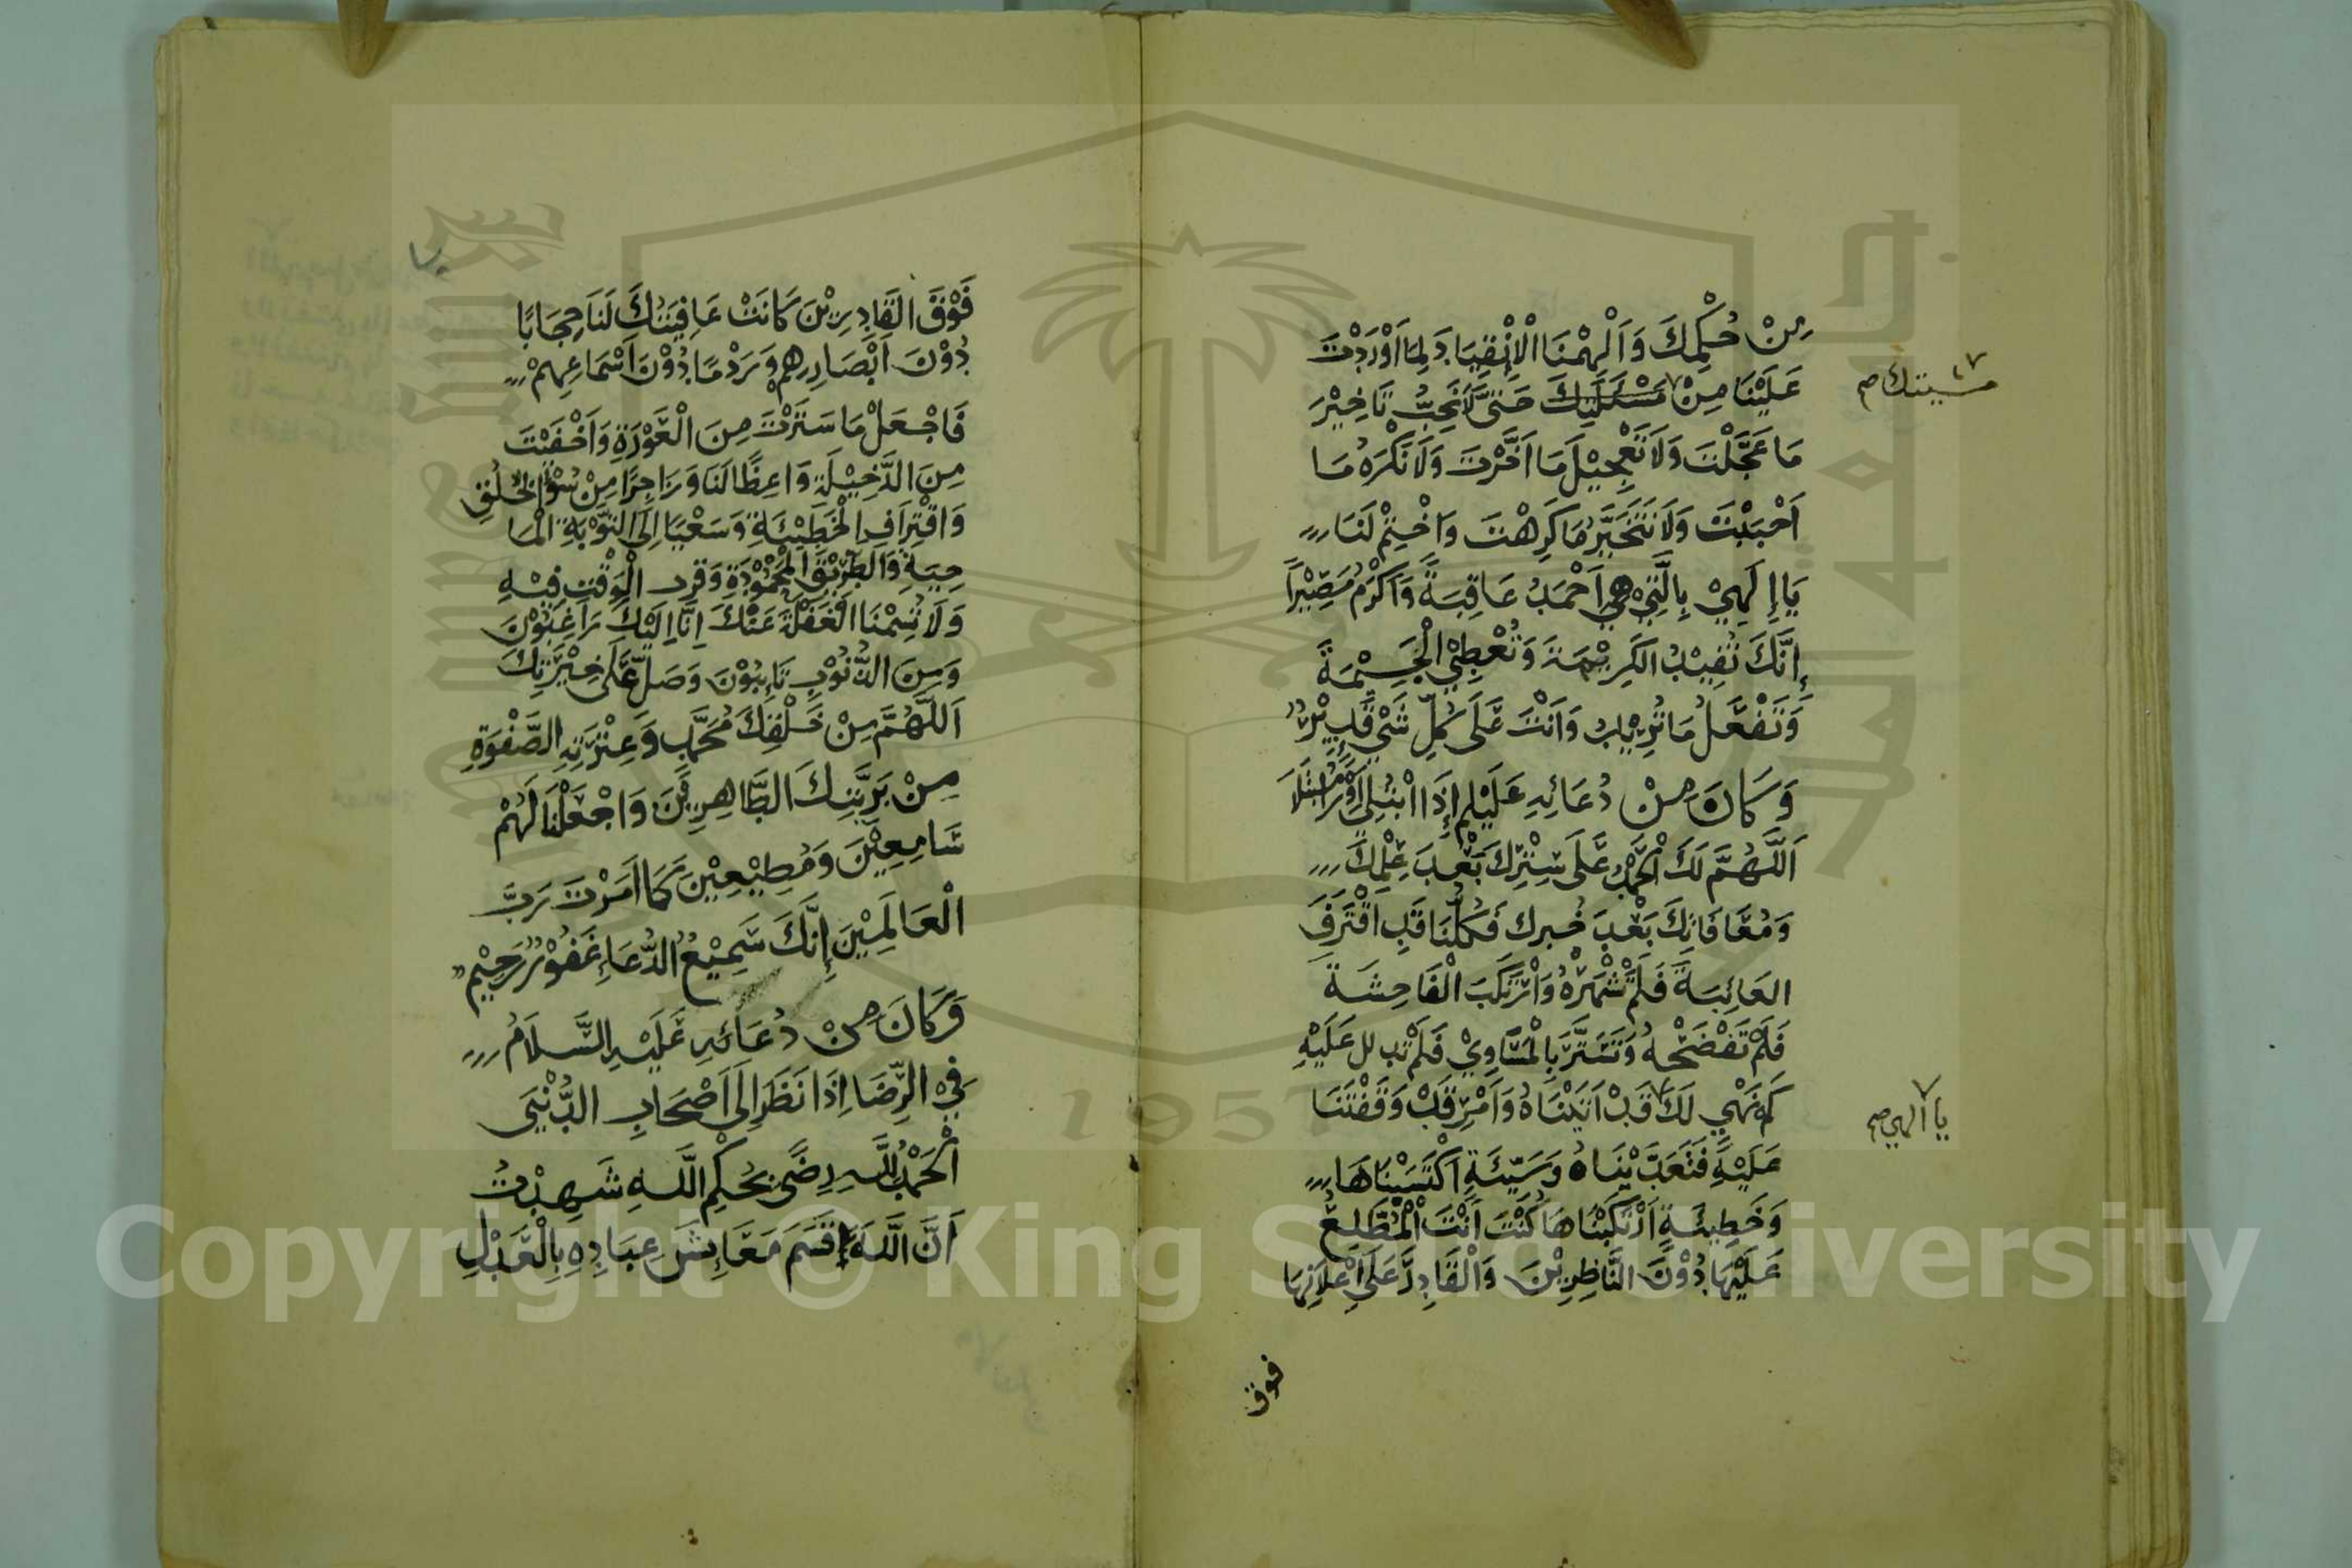 مِنْ حُكْمِكَ وَاَلْهِمْنَا الْاِنْقِيَادَ لِمَا اَوْرَدْتَ
عَلَيْنَا مِنْ مَسْئَلَتِكَ حَتّٰى لَا نُحِبُّ تَاخِيْرَ
مشيتك صح
مَا عَجَّلْتَ وَلَا تَعْجِيْلَ مَا اَخَّرْتَ وَلَا نَكْرَهُ مَا
اَحْبَبْتَ وَلَا نَتَخَيَّرُ مَا كَرِهْتَ وَاخْتِمْ لَنَا
يَا اِلٰهِيْ بِالَّتِيْ هِيَ اَحْمَدُ عَاقِبَةً وَاَكْرَمُ مَصِيْرًا
إِنَّكَ تُفِيْدُ الكَرِيْمَةَ وَتُعْطِيْ الْجَسِيْمَةَ
وَتَفْعَلُ مَا تُرِيْدُ وَاَنْتَ عَلَى كُلِّ شَيْءٍ قَدِيْرٌ
وَكَانَ مِنْ دُعَائِهِ عَلَيْلم إِذَا ابْتُلِىَ
اَللّٰهُمَّ لَكَ الْحَمْدُ عَلَى سِتْرِكَ بَعْدَ عِلْمِكَ
وَمُعَافَاتِكَ بَعْدَ خُبرك فَكُلُّنَا قَدِ اقْتَرَفَ
العَائِبَةَ فَلَمْ تَشْهَرْهُ وَارْتَكَبَ الْفَاحِشَةَ
فَلَمْ تَفْضَحْهُ وَتَسَتَّرَ بِالْمَسَاوِيْ فَلَمْ تدلل عَلَيْهِ
كم نَهْيٍ لَكَ قَدْ اَتَيْنَاهُ وَاَمْرٍ قَدْ وَقَفْتَنَا
يا الهي صح
عَلَيْهِ فَتَعَدَّيْنَاهُ وَسَيِّئَةٍ اكْتَسَبْنَاهَا
وَخَطِيئَةٍ ارْتَكَبْنَاهَا كُنْتَ اَنْتَ الْمُطَّلِعَ
عَلَيْهَا دُوْنَ النَّاظِرِيْنَ وَالْقَادِرَ عَلَى اِعْلَانِهَا
فوق
فَوْقَ القَادِرِيْنَ كَانَتْ عَافِيَتُكَ لَنَا حِجَابًا
دُوْنَ اَبْصَارِهِمْ وَرَدْمًا دُوْنَ اَسْمَاعِهِمْ
فَاجْعَلْ مَا سَتَرْتَ مِنَ الْعَوْرَةِ وَاَخْفَيْتَ
مِنَ الدَّخِيْلَةِ وَاعِظًا لَنَا وَزَاجِرًا مِنْ سُوْءِ الْخُلُقِ
وَاقْتِرَافِ الْخَطِيْئَةِ وَسَعْيًا اِلَى التَّوْبَةِ الْمَا
حِيَةِ وَالطَّرِيْقِ الْمَحْمُوْدَةِ وَقرب الْوَقْتِ فِيْهِ
وَلَا تُسِمْنَا الْغَفْلَةَ عَنْكَ اِنَّا اِلَيْكَ رَاغِبُوْنَ
وَمِنَ الذُّنُوْبِ تَائِبُوْنَ وَصَلِّ عَلَى خِيْرَتِكَ
اَللّٰهُمَّ مِنْ خَلْقِكَ مُحَمَّدٍ وَعِتْرَتِهِ الصَّفْوَةِ
مِنْ بَرِيَّتِكَ الطَّاهِرِيْنَ وَاجْعَلْنَا لَهُمْ
سَامِعِيْنَ وَمُطِيْعِيْنَ كَمَا اَمَرْتَ رَبَّ
الْعَالَمِيْنَ إِنَّكَ سَمِيْعُ الدُّعَاءِ غَفُوْرٌ رَحِيْمٌ
وَكَانَ مِنْ دُعَائِهِ عَلَيْهِ السَّلَامُ
فِي الرِّضَا اِذَا نَظَرَ اِلَى اَصْحَابِ الدُّنْيَى
اَلْحَمْدُ لِلّٰهِ رِضًى بِحُكْمِ اللَّهِ شَهِدْتُ
اَنَّ اللَّهَ قَسَمَ مَعَايِشَ عِبَادِهِ بِالْعَدْلِ
1957
Copyright © King Saud University